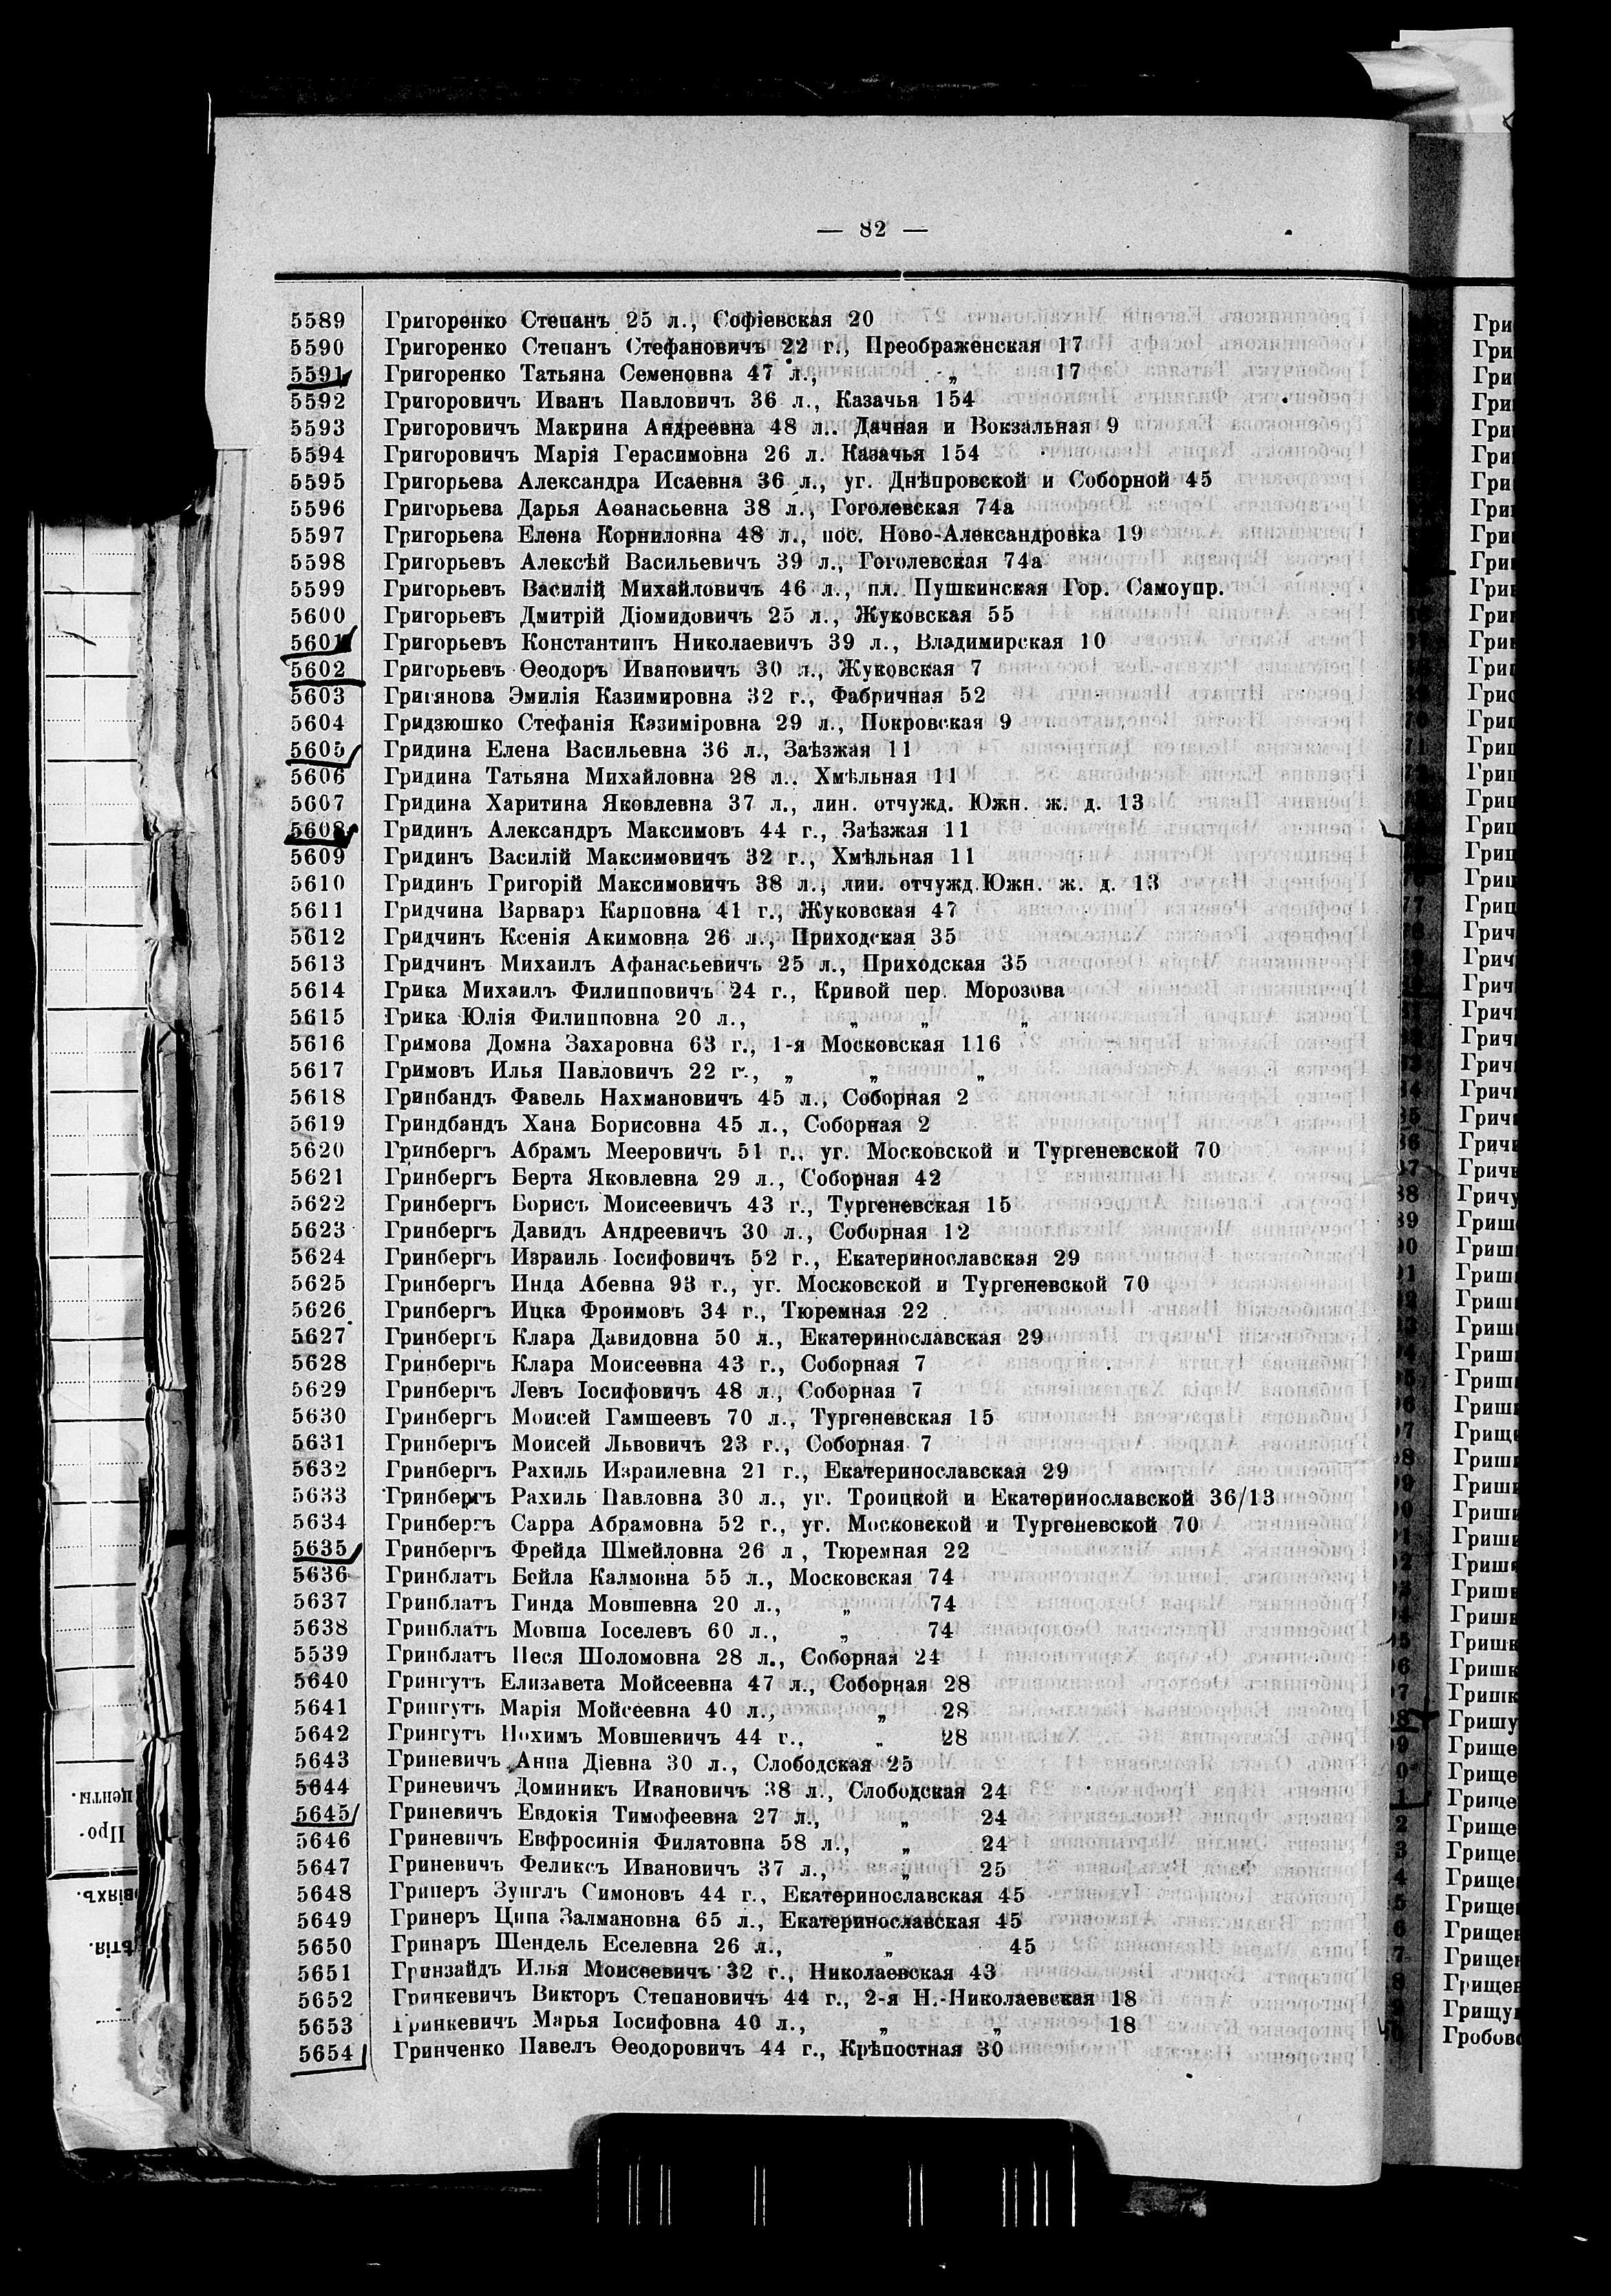 — 82 —
5589 Григоренко Степанъ 25 л., Софіевская 20
5590 Григоренко Степанъ Стефановичъ 22 г., Преображенская 17
5591 Григоренко Татьяна Семеновна 47 л., „ 17
5592 Григоровичъ Иванъ Павловичъ 36 л., Казачья 154
5593 Григоровичъ Макрина Андреевна 48 л.. Дачная и Вокзальная 9
5594 Григоровичъ Марія Герасимовна 26 л. Казачья 154
5595 Григорьева Александра Исаевна 36 л., уг. Днѣпровской и Соборной 45
5596 Григорьева Дарья Аѳанасьевна 38 л., Гоголевская 74а
5597 Григорьева Елена Корниловна 48 л., пос. Ново-Александровка 19
5598 Григорьевъ Алексѣй Васильевичъ 39 л., Гоголевская 74а
5599 Григорьевъ Василій Михайловичъ 46 л., пл. Пушкинская Гор. Самоупр.
5600 Григорьевъ Дмитрій Діомидовичъ 25 л., Жуковская 55
5601 Григорьевъ Константинъ Николаевичъ 39 л., Владимирская 10
5602 Григорьевъ Ѳеодоръ Ивановичъ 30 л., Жуковская 7
5603 Григянова Эмилія Казимировна 32 г., Фабричная 52
5604 Гридзюшко Стефанія Казиміровна 29 л., Покровская 9
5605 Гридина Елена Васильевна 36 л., Заѣзжая 11
5606 Гридина Татьяна Михайловна 28 л.. Хмѣльная 11
5607 Гридина Харитина Яковлевна 37 л., лин. отчужд. Южн. ж. д. 13
5608 Гридинъ Александръ Максимовъ 44 г., Заѣзжая 11
5609 Гридинъ Василій Максимовичъ 32 г., Хмѣльная 11
5610 Гридинъ Григорій Максимовичъ 38 л., лин. отчужд. Южн. ж. д. 13
5611 Гридчина Варвара Карповна 41 г., Жуковская 47
5612 Гридчинъ Ксенія Акимовна 26 л., Приходская 35
5613 Гридчинъ Михаилъ Афанасьевичъ 25 л., Приходская 35
5614 Грика Михаилъ Филипповичъ 24 г., Кривой пер. Морозова
5615 Грика Юлія Филипповна 20 л., „ „ „
5616 Гримова Домна Захаровна 63 г., 1-я Московская 116
5617 Гримовъ Илья Павловичъ 22 г., „ „ „
5618 Гринбандъ Фавель Нахмановичъ 45 л., Соборная 2
5619 Гриндбандъ Хана Борисовна 45 л., Соборная 2
5620 Гринбергъ Абрамъ Мееровичъ 51 г., уг. Московской и Тургеневской 70
5621 Гринбергъ Берта Яковлевна 29 л., Соборная 42
5622 Гринбергъ Борисъ Моисеевичъ 43 г., Тургеневская 15
5623 Гринбергъ Давидъ Андреевичъ 30 л., Соборная 12
5624 Гринбергъ Израиль Іосифовичъ 52 г., Екатеринославская 29
5625 Гринбергъ Инда Абевна 93 г., уг. Московской и Тургеневской 70
5626 Гринбергъ Ицка Фроимовъ 34 г., Тюремная 22
5627 Гринбергъ Клара Давидовна 50 л., Екатеринославская 29
5628 Гринбергъ Клара Моисеевна 43 г., Соборная 7
5629 Гринбергъ Левъ Іосифовичъ 48 л., Соборная 7
5630 Гринбергъ Моисей Гамшеевъ 70 л., Тургеневская 15
5631 Гринбергъ Моисей Львовичъ 23 г., Соборная 7
5632 Гринбергъ Рахиль Израилевна 21 г., Екатеринославская 29
5633 Гринбергъ Рахиль Павловна 30 л., уг. Троицкой и Екатеринославской 36/13
5634 Гринбергъ Сарра Абрамовна 52 г., уг. Московской и Тургеневской 70
5635 Гринбергъ Фрейда Шмейловна 26 л , Тюремная 22
5636 Гринблатъ Бейла Калмовна 55 л., Московская 74
5637 Гринблатъ Гинда Мовшевна 20 л., „ 74
5638 Гринблатъ Мовша Іоселевъ 60 л., „ 74
5539 Гринблатъ Песя Шоломовна 28 л., Соборная 24
5640 Грингутъ Елизавета Мойсеевна 47 л., Соборная 28
5641 Грингутъ Марія Мойсеевна 40 л., „ 28
5642 Грингутъ Нохимъ Мовшевичъ 44 г., „ 28
5643 Гриневичъ Анна Діевна 30 л., Слободская 25
5644 Гриневичъ Доминикъ Ивановичъ 38 л., Слободская 24
5645 Гриневичъ Евдокія Тимофеевна 27 л., „ 24
5646 Гриневичъ Евфросинія Филатовна 58 л., „ 24
5647 Гриневичъ Феликсъ Ивановичъ 37 л., „ 25
5648 Гринеръ Зунглъ Симоновъ 44 г., Екатеринославская 45
5649 Гринеръ Ципа Залмановна 65 л., Екатеринославская 45
5650 Гринаръ Шендель Еселевна 26 л., „ 45
5651 Гринзайдъ Илья Моисеевичъ 32 г., Николаевская 43
5652 Гринкевичъ Викторъ Степановичъ 44 г., 2-я Н.-Николаевская 18
5653 Гринкевичъ Марья Іосифовна 40 л., „ „ 18
5654 Гринченко Павелъ Ѳеодоровичъ 44 г., Крѣпостная 30